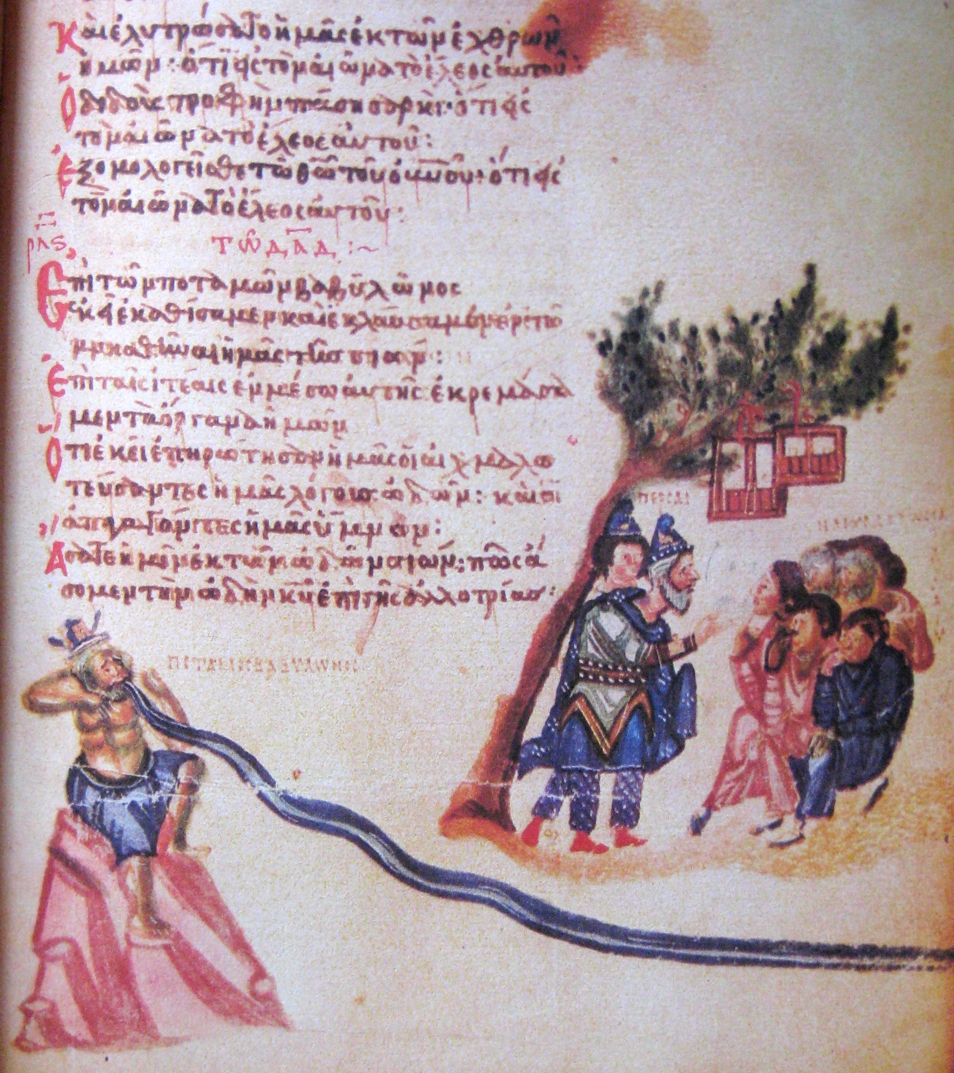 Καὶ ἐλυτρώσατο ἡμᾶς ἐκ τῶν ἐχθρῶν
ἡμῶν: ὅτι εἰς τὸν αἰῶνα τὸ ἔλεος αὐτοῦ:
Ὁ διδοὺς τροφὴν πάση σαρκί: ὅτι εἰς
τὸν αἰῶνα τὸ ἔλεος αὐτοῦ:
Ἐξομολογεῖσθε τῶ θεῶ τοῦ οὐνοῦ: ὅτι εἰς
τὸν αἰῶνα τὸ ἔλεος αὐτοῦ:
ρλς
τῶ δᾱδ :~
Ἐπὶ τῶν ποταμῶν βαβυλῶνος
ἐκεῖ ἐκαθίσαμεν καὶ ἐκλαύσαμεν ἐν τῶ
μνησθῆναι ἡμᾶς τῆς σιών:
Ἐπὶ ταῖς ἰτέαις ἐν μέσω αὐτῆς ἐκρεμάσα
μεν τὰ ὄργανα ἡμῶν
Ὅτι ἐκεῖ ἐπηρώτησαν ἡμᾶς οἱ αἰχμαλω
τεύσαντες ἡμᾶς λόγους ὠδῶν: καὶ οἱ
ἀπαγαγόντες ἡμᾶς ὕμνον:
Ἄσατε ἡμῖν ἐκ τῶν ὠδῶν σιών: πῶς ἄ
σομεν τὴν ὠδὴν κυ ἐπὶ γῆς ἀλλοτρίας:
ΠΕΡΣΑΙ